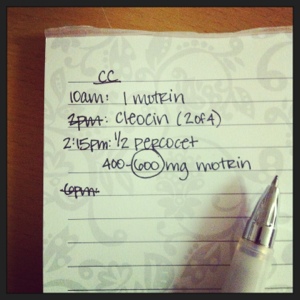 CC
10am: 1 motrin
2pm: cleocin (2 of 4)
2:15pm: 1/2 percocet
400-600 mg motrin
6pm